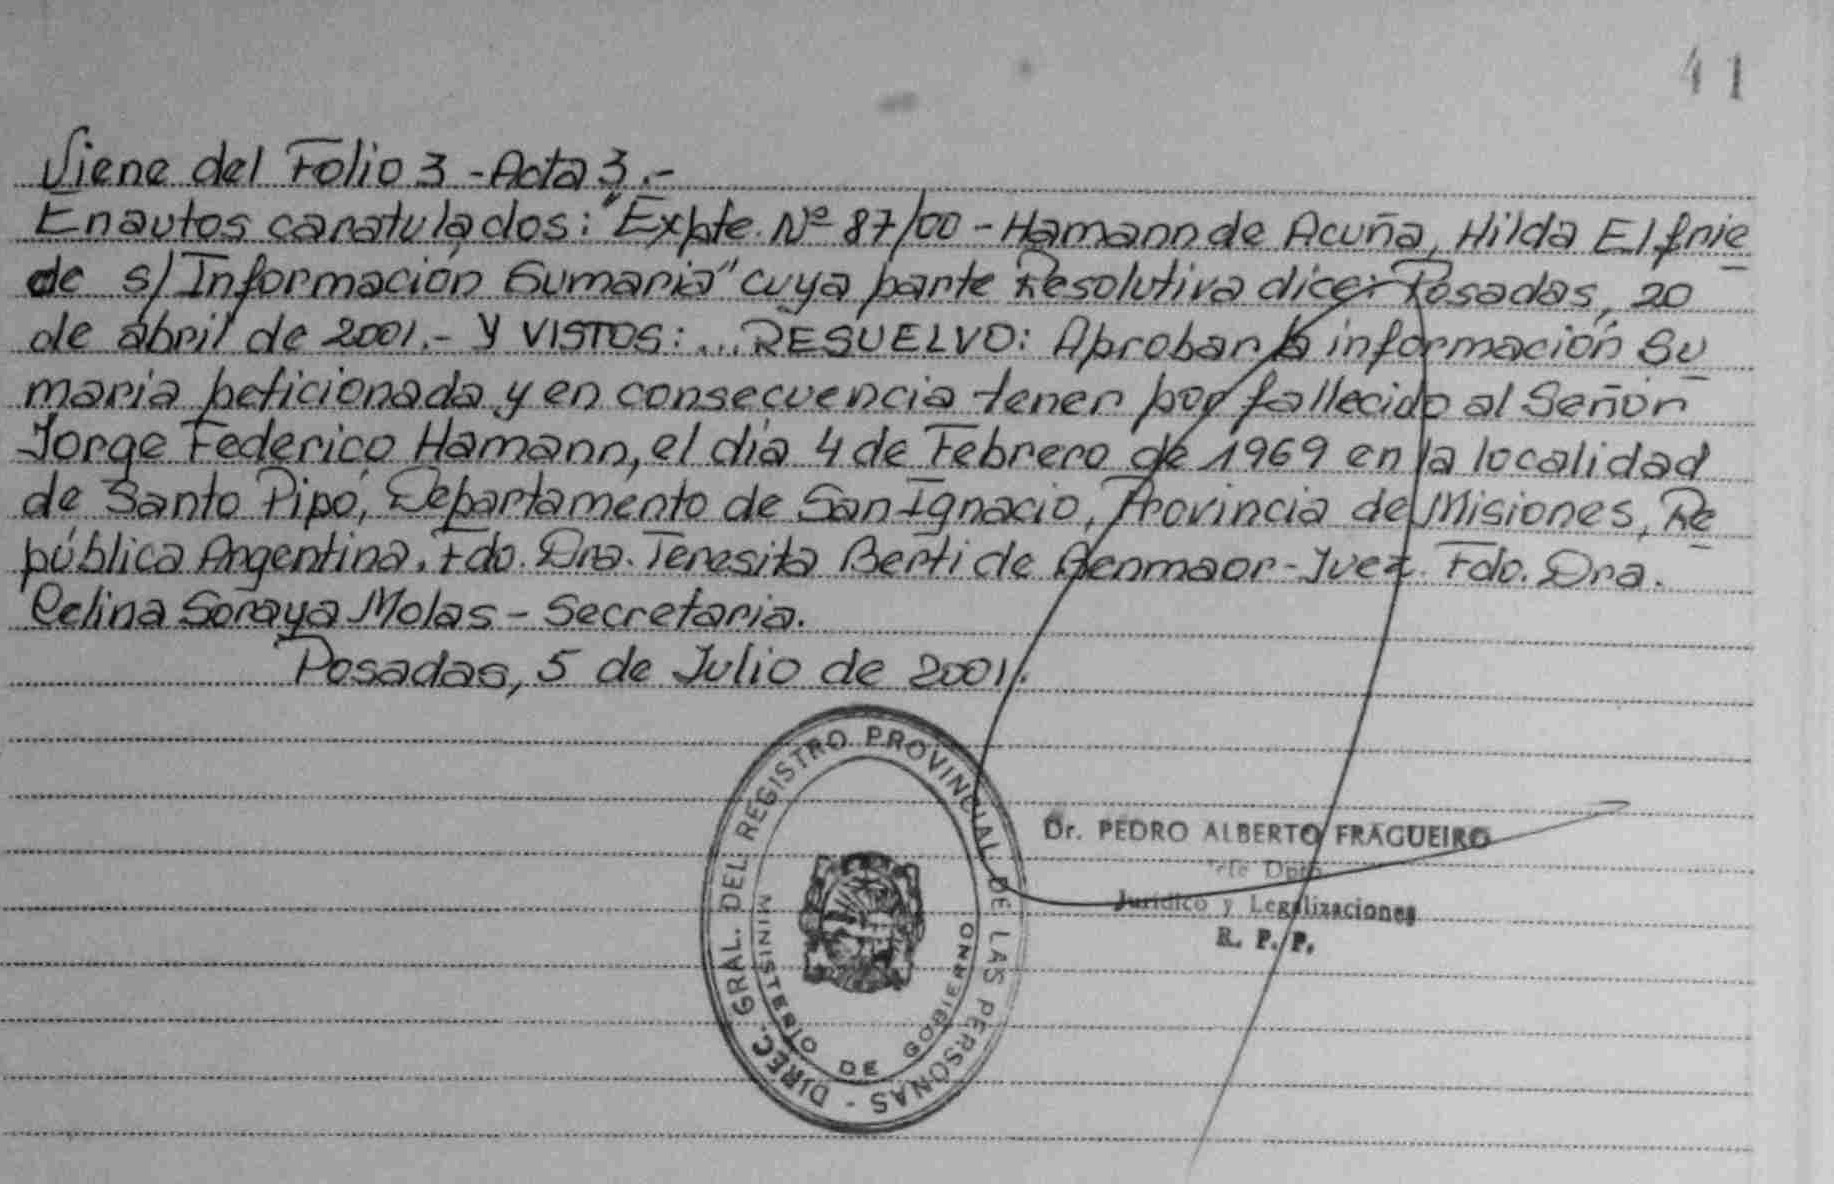 41
Viene del Folio 3 - Acta 3.-
En autos caratulados: "Expte. Nº 87/00 - Hamann de Acuña, Hilda Elfrie
de s/Información Sumaria" cuya parte Resolutiva dice: Posadas, 20
de abril de 2001.- Y VISTOS:... RESUELVO: Aprobar la información Su
maria peticionada y en consecuencia tener por fallecido al Señor
Jorge Federico Hamann, el día 4 de Febrero de 1969 en la localidad
de Santo Pipó, Departamento de San Ignacio, Provincia de Misiones, Re
pública Argentina. Fdo. Dra. Teresita Berti de Benmaor - Juez. Fdo. Dra.
Celina Soraya Molas - Secretaria.
Posadas, 5 de Julio de 2001.
DIREC. GRAL. DEL REGISTRO PROVINCIAL DE LAS PERSONAS -
MINISTERIO DE GOBIERNO
Dr. PEDRO ALBERTO FRAGUEIRO
Jefe Dpto.
Jurídico y Legalizaciones
R. P. P.